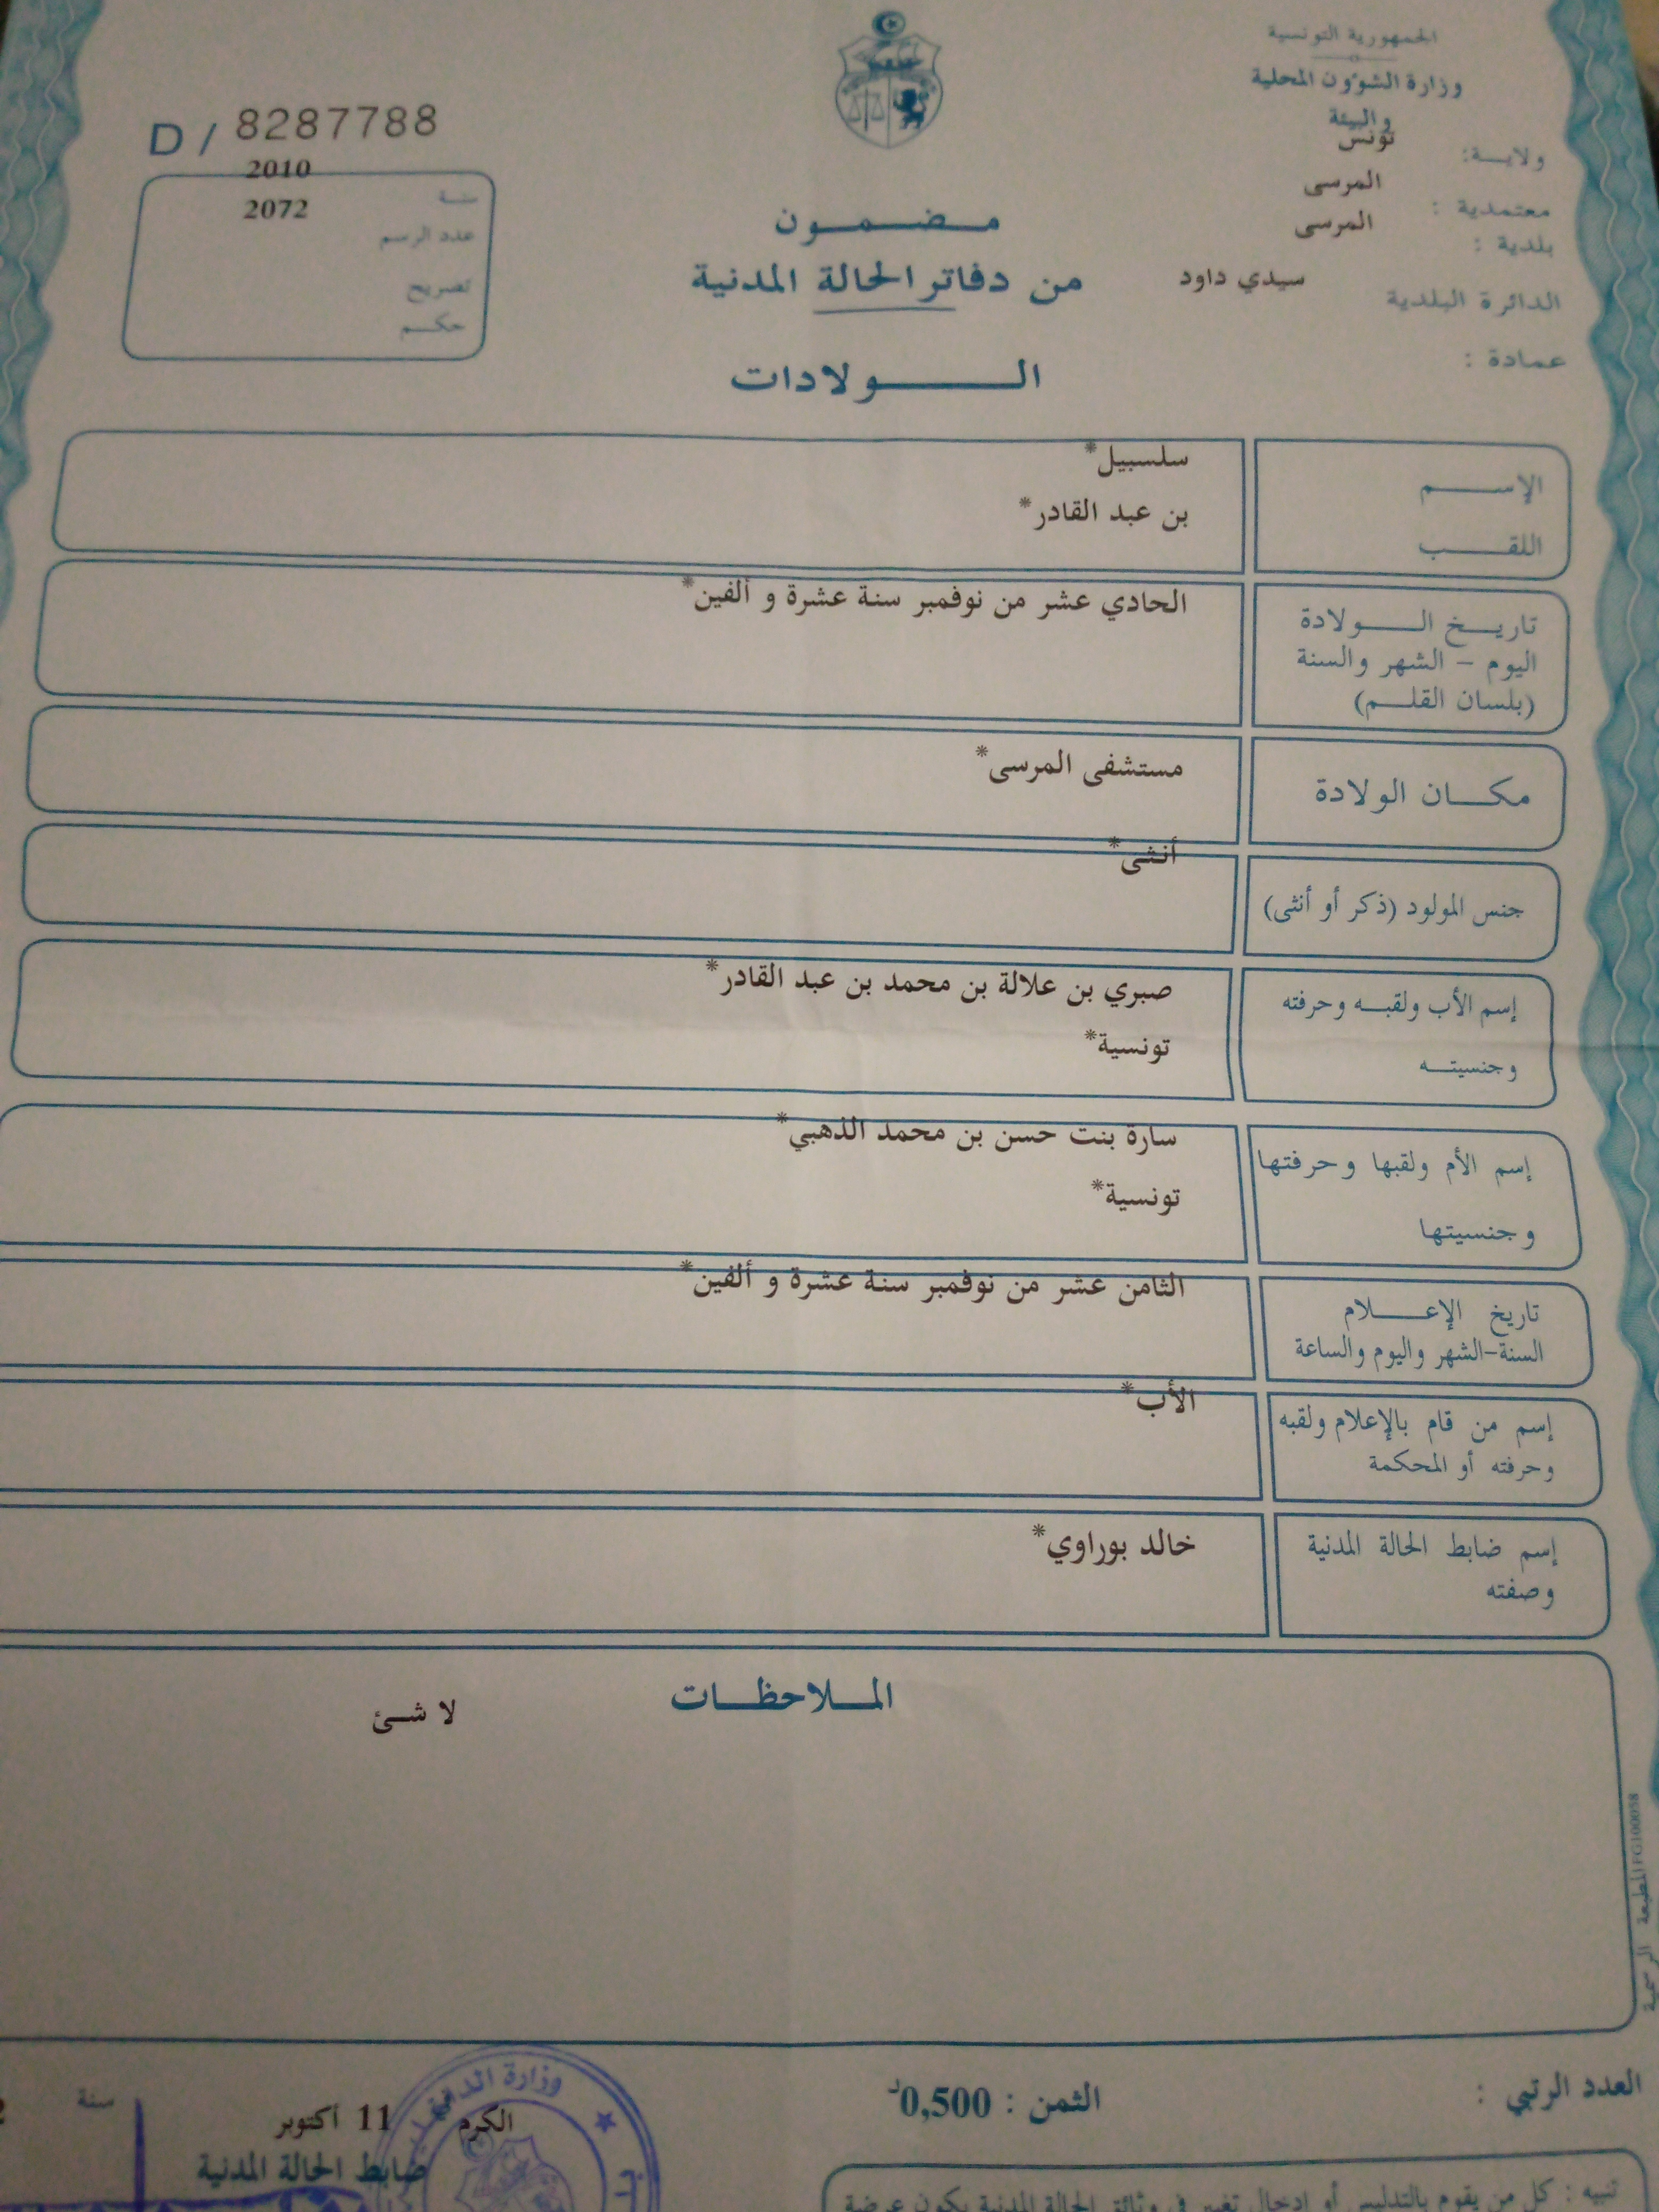 الجمهورية التونسية
وزارة الشؤون المحلية
والبيئة
ولايــة: تونس
معتمدية : المرسى
بلدية : المرسى
الدائرة البلدية سيدي داود
عمادة :
D / 8287788
سنة 2010
عدد الرسم 2072
تصريح
حكم
مضمون
من دفاتر الحالة المدنية
الولادات
الإسم سلسبيل*
اللقب بن عبد القادر*
تاريخ الولادة الحادي عشر من نوفمبر سنة عشرة و ألفين*
اليوم - الشهر والسنة
(بلسان القلم)
مكان الولادة مستشفى المرسى*
جنس المولود (ذكر أو أنثى) أنثى*
إسم الأب ولقبه وحرفته صبري بن علالة بن محمد بن عبد القادر*
وجنسيته تونسية*
إسم الأم ولقبها وحرفتها سارة بنت حسن بن محمد الذهبي*
وجنسيتها تونسية*
تاريخ الإعلام الثامن عشر من نوفمبر سنة عشرة و ألفين*
السنة-الشهر واليوم والساعة
إسم من قام بالإعلام ولقبه الأب*
وحرفته أو المحكمة
إسم ضابط الحالة المدنية خالد بوراوي*
وصفته
الملاحظات
لا شئ
المطبعة الرسمية FG100058
العدد الرتبي :
الثمن : 0,500د
الكرم 11 أكتوبر سنة
ضابط الحالة المدنية
وزارة
تنبيه : كل من يقوم بالتدليس أو إدخال تغيير في وثائق الحالة المدنية يكون عرضة